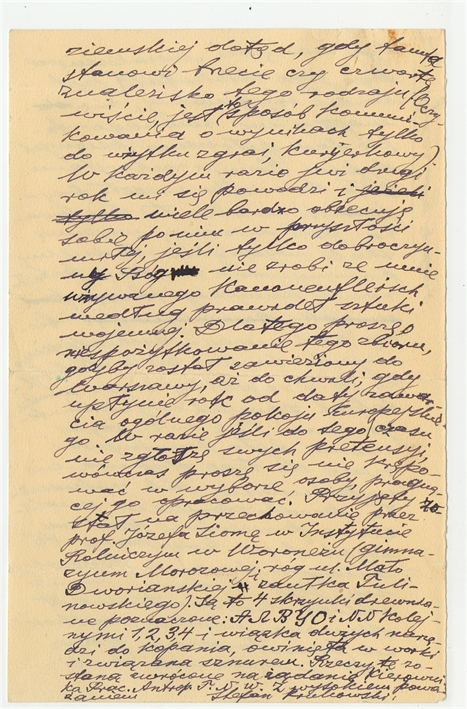 ziemskiej dotąd, gdy tamta
stanowi trecie czy czwarte
znalezisko tego rodzaju (Oczy-
wiście, jest to sposób komuni-
kowania o wynikach tylko
do użytku zgrai kurjerkowej)
W każdym razie już drugi
rok mi się powodzi i jeżeli
tylko wiele bardzo obiecuję
sobie po nim w przyszłości
mitej, jeśli tylko dobroczyn-
ny Bóg nie zrobi ze mnie
używanego Kanonenfleisch
według prawideł sztuki
wojennej. Dlatego proszę o
niespożytkowanie tego zbioru,
gdyby został zawieziony do
Warszawy, aż do chwili, gdy
upłynie rok od daty zawar-
cia ogólnego pokoju Europejskie-
go. W razie jeśli do tego czasu
nie zgłoszę swych pretensyi,
wówczas proszę się nie krępo-
wać w wyborze osoby, pragną-
cej go opracować. Przyjęty zo-
stał na przechowanie przez
prof. Józefa Siomę w Instytucie
Rolniczym w Woroneżu (gimna-
zyum Morozowej, róg ul. Mało
Dworiańskiej i zaułka Tuli-
nowskiego). Są to 4 skrzynki drewnia-
ne poznaczone: A R B Y O i NN kolej-
nymi 1, 2, 3, 4 i wiązka dużych narzę-
dzi do kopania, owinięta w worki
i związana sznurem. Rzeczy te zo-
staną zwrócone na żądanie Kierowni-
ka Prac. Antrop. T. N. W. Z wysokiem powa-
żaniem Stefan Krukowski